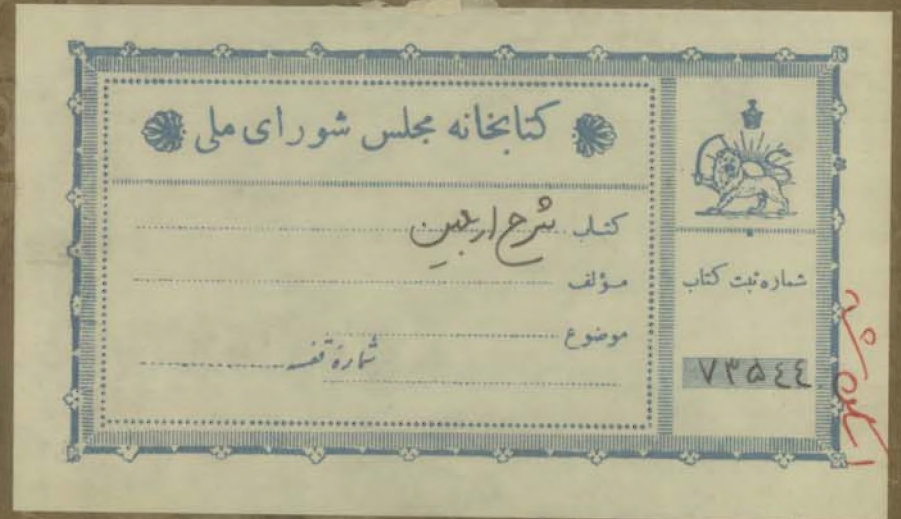 کتابخانه مجلس شورای ملی
کتاب شرح اربعین
مؤلف
موضوع
شمارهٔ قفسه
شماره ثبت کتاب
۷۳۵۴۴
اسکن شد